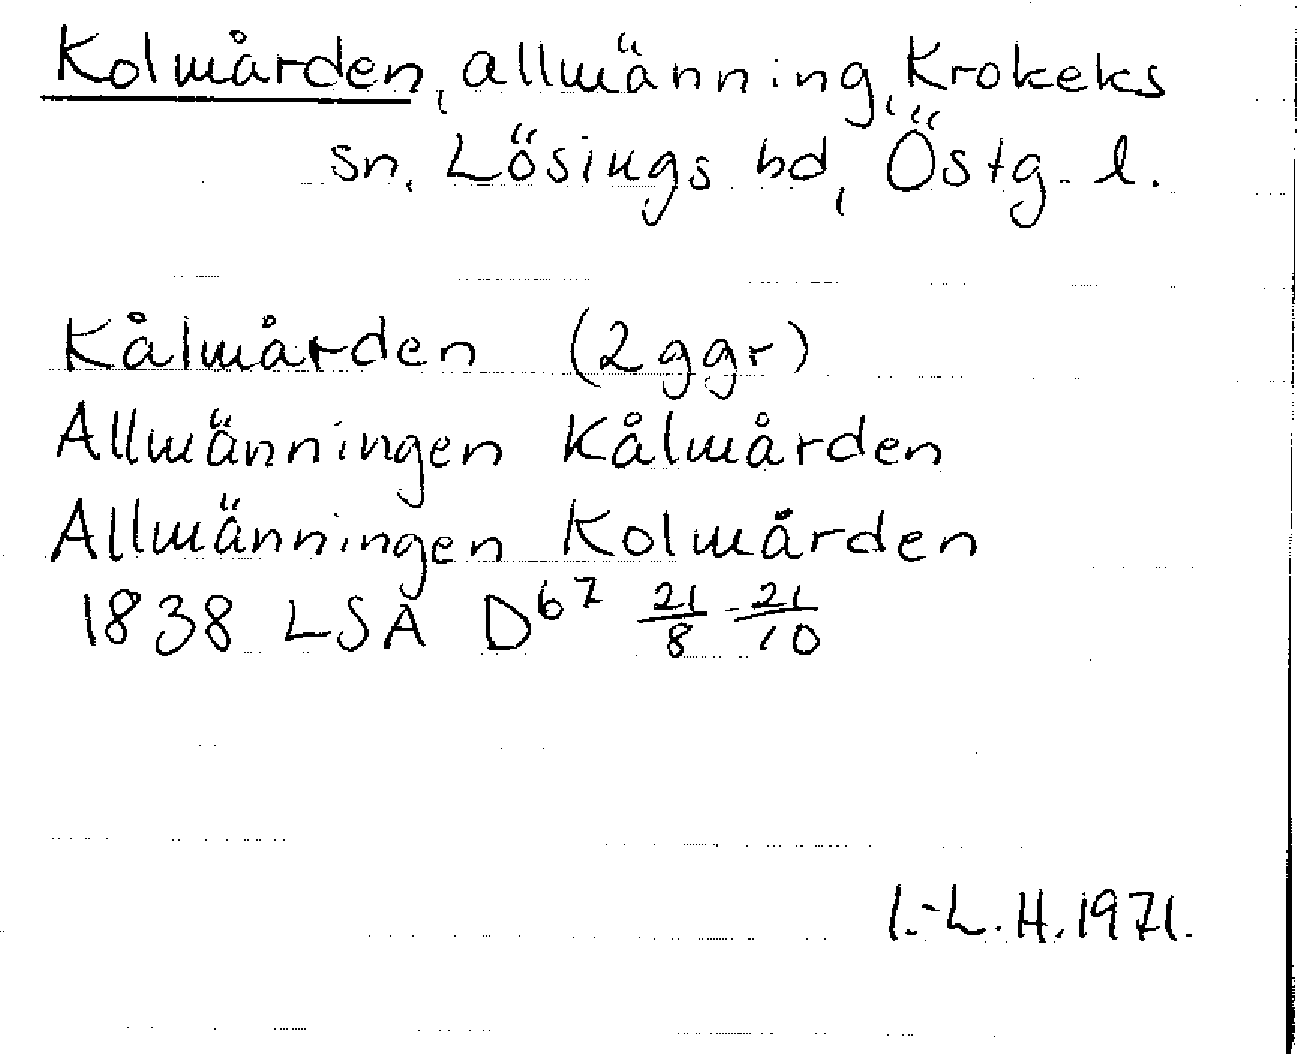 Kolmården, allmänning, Krokeks
sn, Lösings hd, Östg. l.
Kålmården (2ggr)
Allmänningen Kålmården
Allmänningen Kolmården
1838 LSA D67 21/8 - 21/10
I.-L. H. 1971.